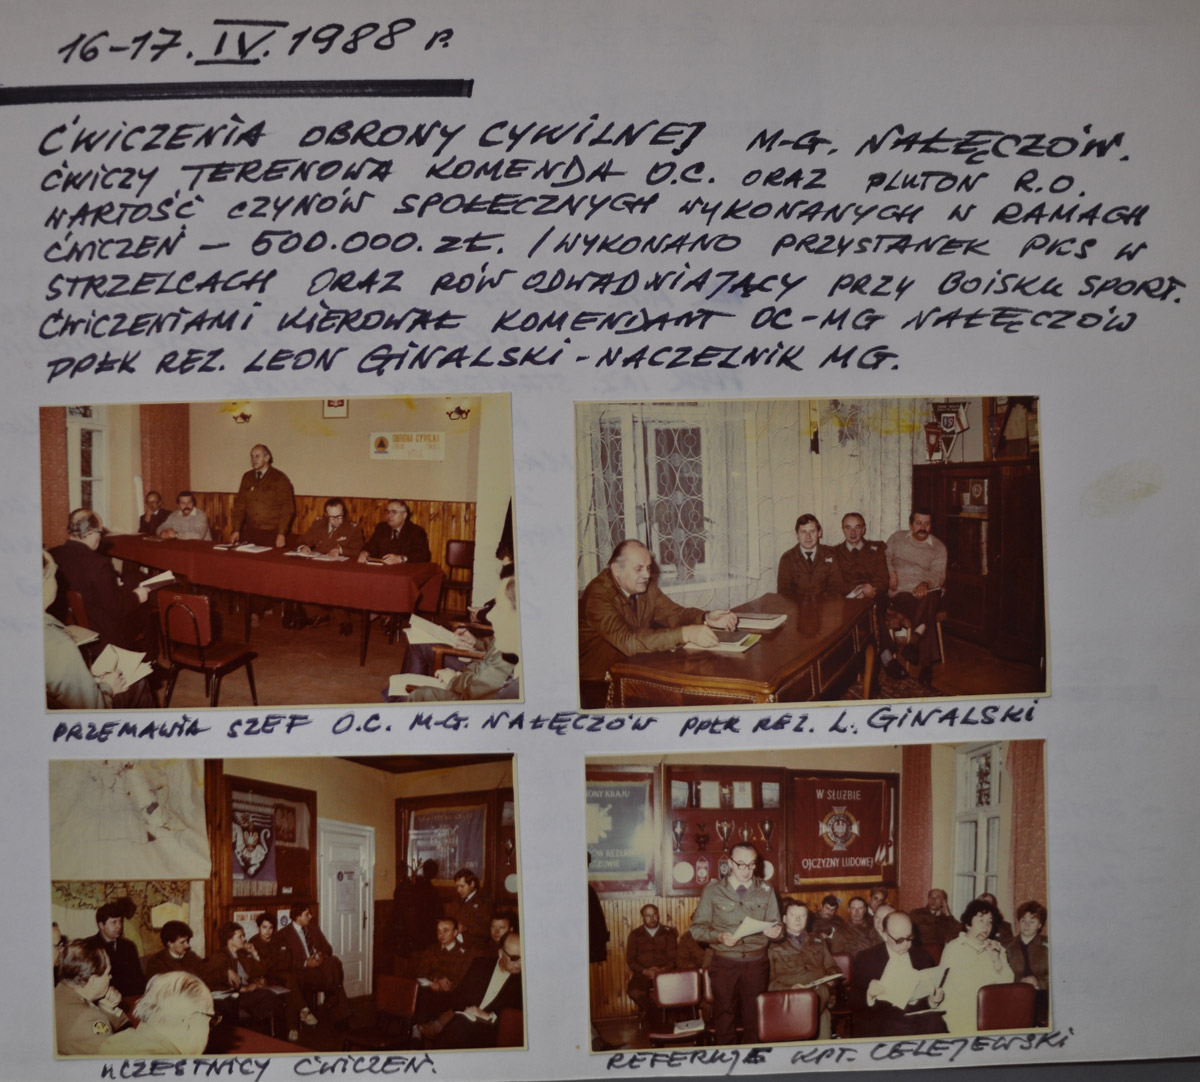 16-17. IV. 1988 r.
ĆWICZENIA OBRONY CYWILNEJ M-G. NAŁĘCZÓW.
ĆWICZY TERENOWA KOMENDA O.C. ORAZ PLUTON R.O.
WARTOŚĆ CZYNÓW SPOŁECZNYCH WYKONANYCH W RAMACH
ĆWICZEŃ — 500.000. ZŁ. / WYKONANO PRZYSTANEK PKS W
STRZELCACH ORAZ RÓW ODWADWIAJĄCY PRZY BOISKU SPORT.
ĆWICZENIAMI KIEROWAŁ KOMENDANT OC-MG NAŁĘCZÓW
PPŁK REZ. LEON GINALSKI - NACZELNIK MG.
OBRONA CYWILNA
PRZEMAWIA SZEF O.C. M-G. NAŁĘCZÓW PPŁK REZ. L. GINALSKI
W SŁUŻBIE
OJCZYZNY LUDOWEJ
KRAJU
UCZESTNICY ĆWICZEŃ.
REFERUJE KPT. CELEJEWSKI